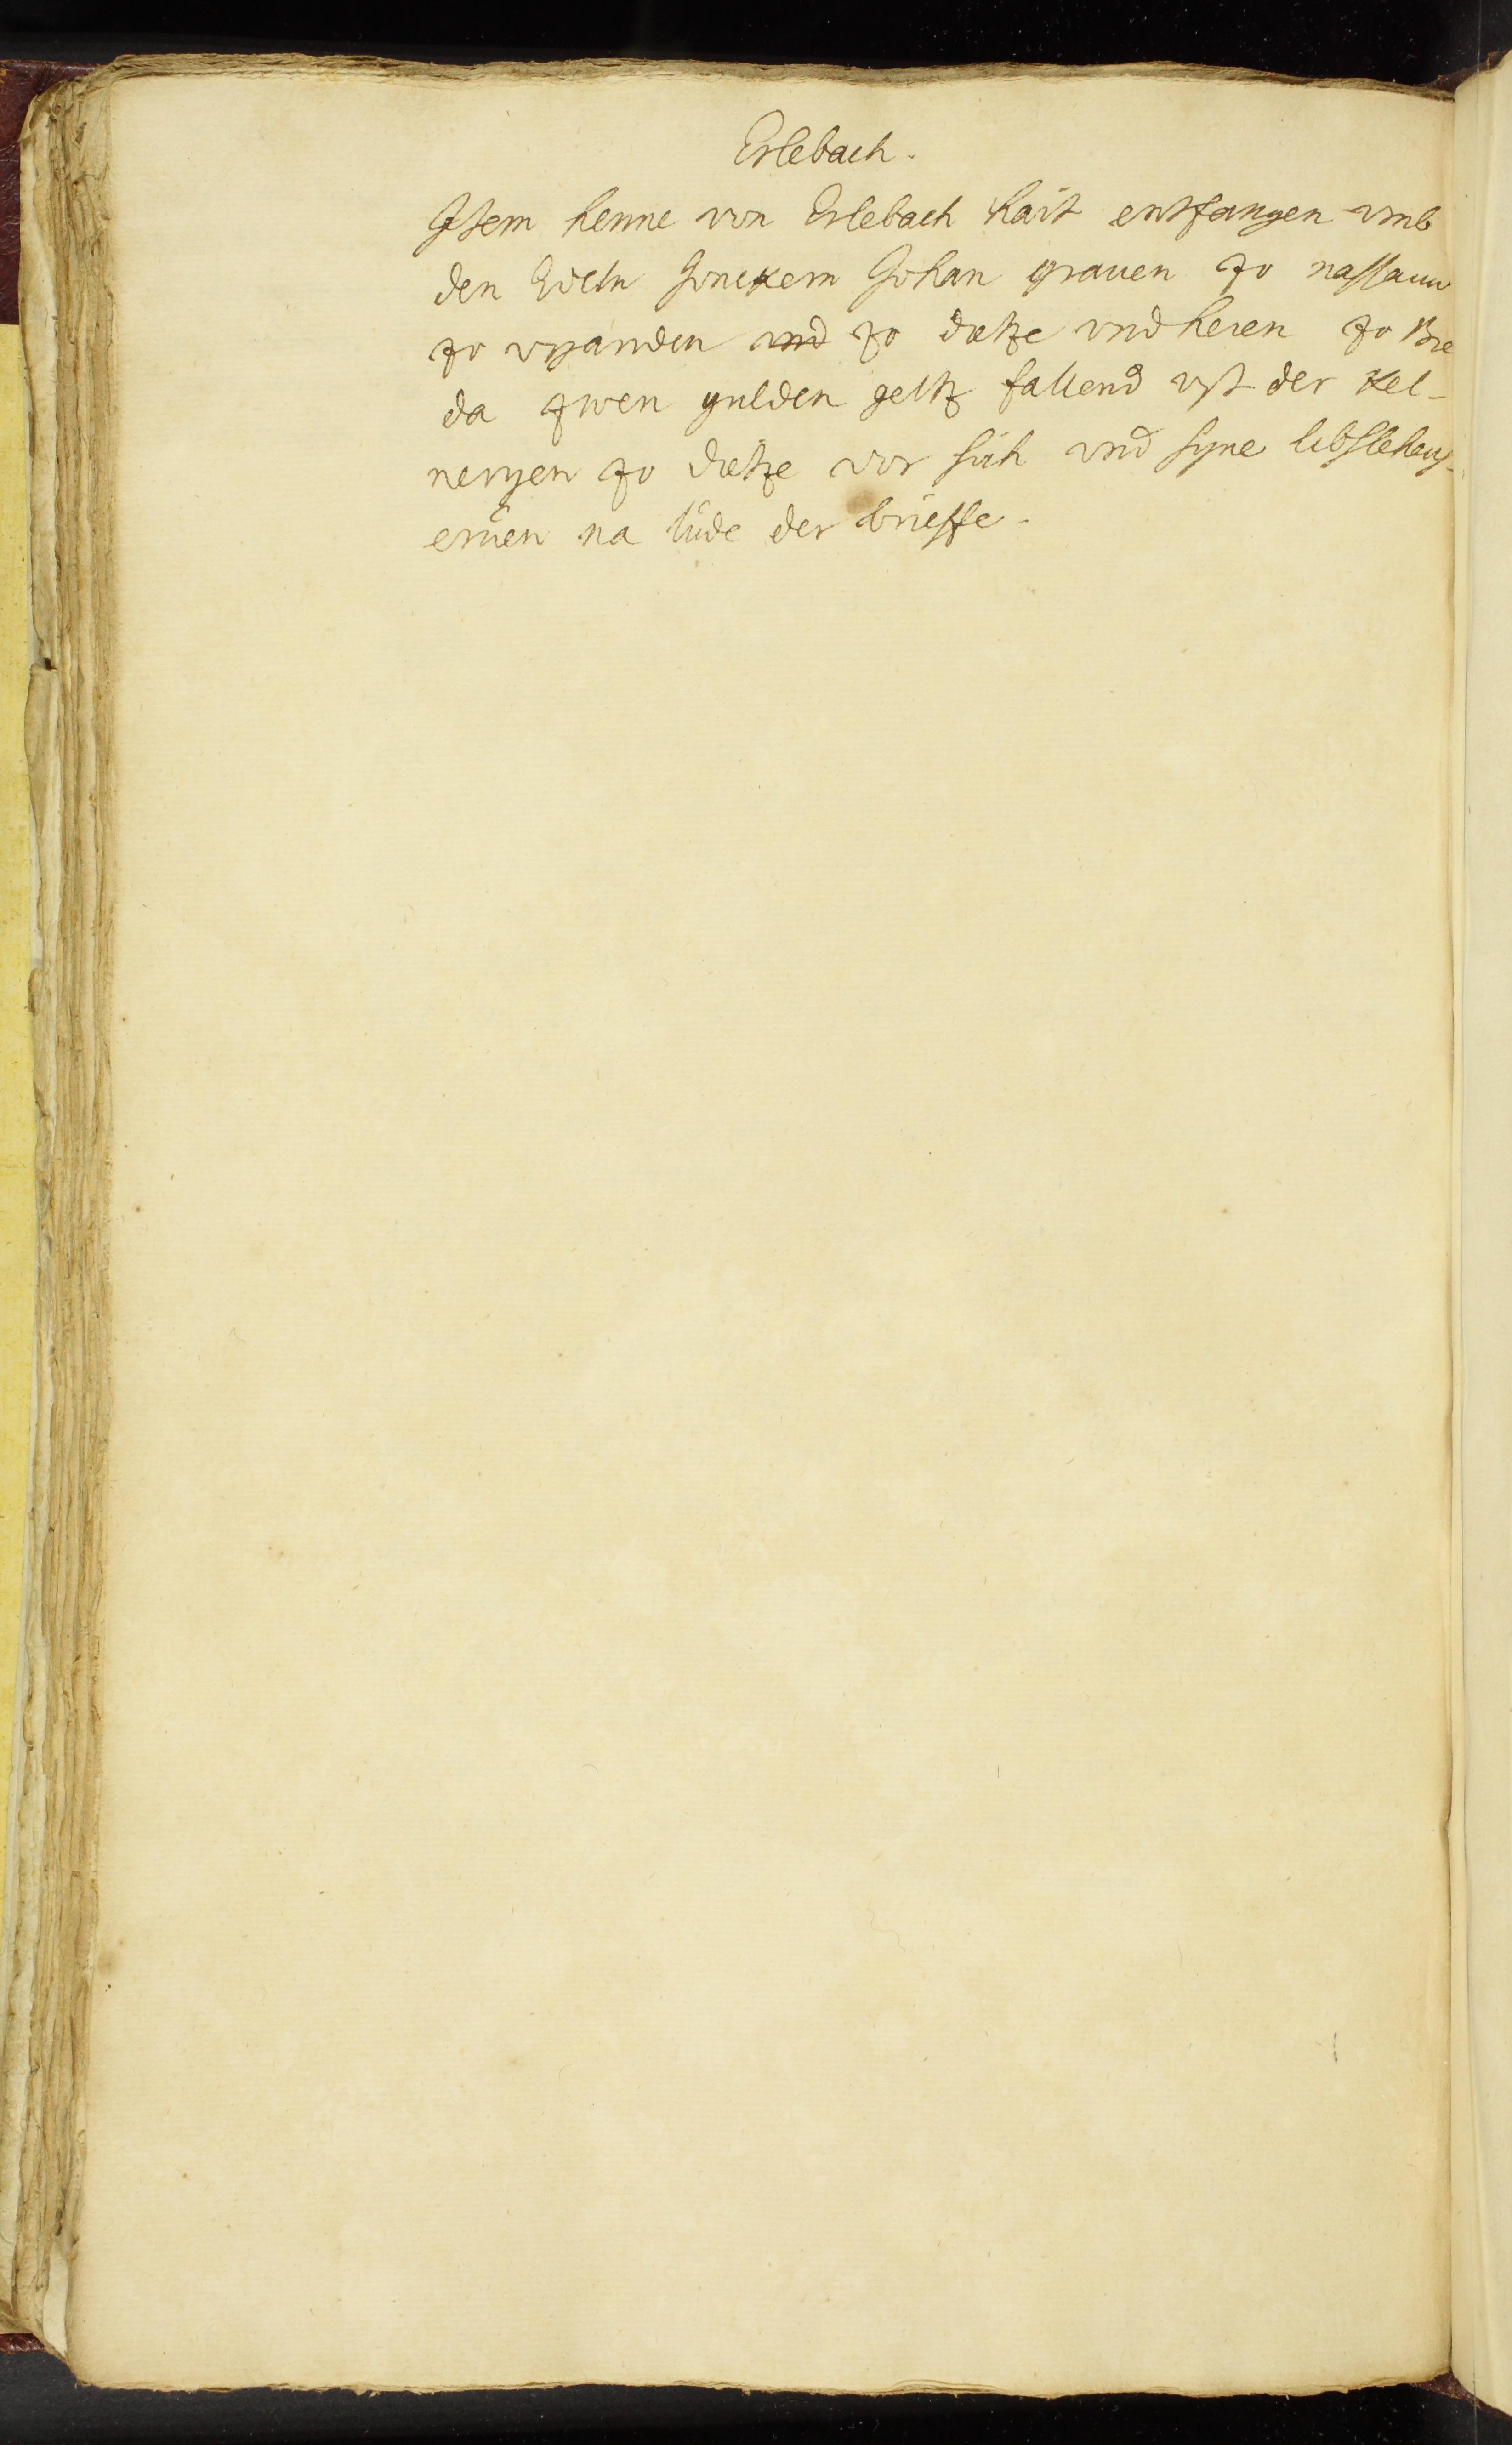 Erlebach.
Jtem henne von Erlebach hait entfangen vmb
den Edeln Jonckern Johan grauen zo nassauw
zo vyanden vnd zo dietze vnd heren zo Bre
da zwen gulden geltz fallend vß der kel-
neryen zo dietze vor sich vnd syne libslehens-
eruen na lude der brieffe.